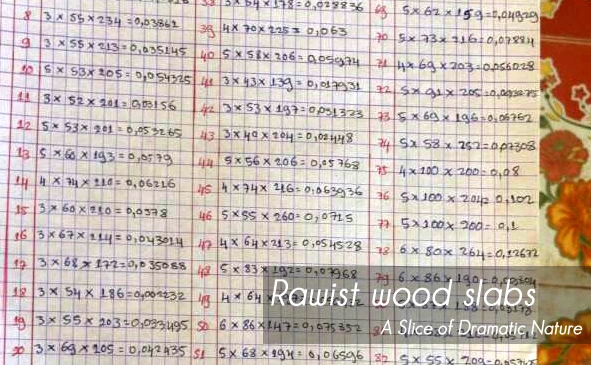 8 3 x 55 x 234 = 0,03861
9 3 x 55 x 213 = 0,035145
10 5 x 53 x 205 = 0,054325
11 3 x 52 x 201 = 0,03156
12 5 x 53 x 201 = 0,053265
13 5 x 60 x 193 = 0,0579
14 4 x 74 x 210 = 0,06216
15 3 x 60 x 210 = 0,0378
16 3 x 67 x 214 = 0,043014
17 3 x 68 x 172 = 0,035088
18 3 x 54 x 186 =
19 3 x 55 x 203 = 0,033495
20 3 x 69 x 205 = 0,042435
38 3 x 54 x 178 = 0,028836
39 4 x 70 x 225 = 0,063
40 5 x 58 x 206 = 0,059774
41 3 x 43 x 139 = 0,017931
42 3 x 53 x 197 = 0,031323
43 3 x 40 x 204 = 0,02448
44 5 x 56 x 206 = 0,05768
45 4 x 74 x 216 = 0,063936
46 5 x 55 x 260 = 0,0715
47 4 x 64 x 213 = 0,054528
48 5 x 83 x 192 = 0,07968
49 4 x 64 x
50 6 x 86 x 147 = 0,075852
51 5 x 68 x 194 = 0,06596
69 5 x 62 x 159 = 0,04929
70 5 x 73 x 216 = 0,07884
71 4 x 69 x 203 = 0,056028
72 5 x 91 x 205 =
73 5 x 69 x 196 = 0,06762
74 5 x 58 x 252 = 0,07308
75 4 x 100 x 200 = 0,08
76 5 x 100 x 204 = 0,102
77 5 x 100 x 200 = 0,1
78 6 x 80 x 264 = 0,12672
79 6 x 86 x 190 =
82 5 x 55 x 209 =
Rawist wood slabs
A Slice of Dramatic Nature